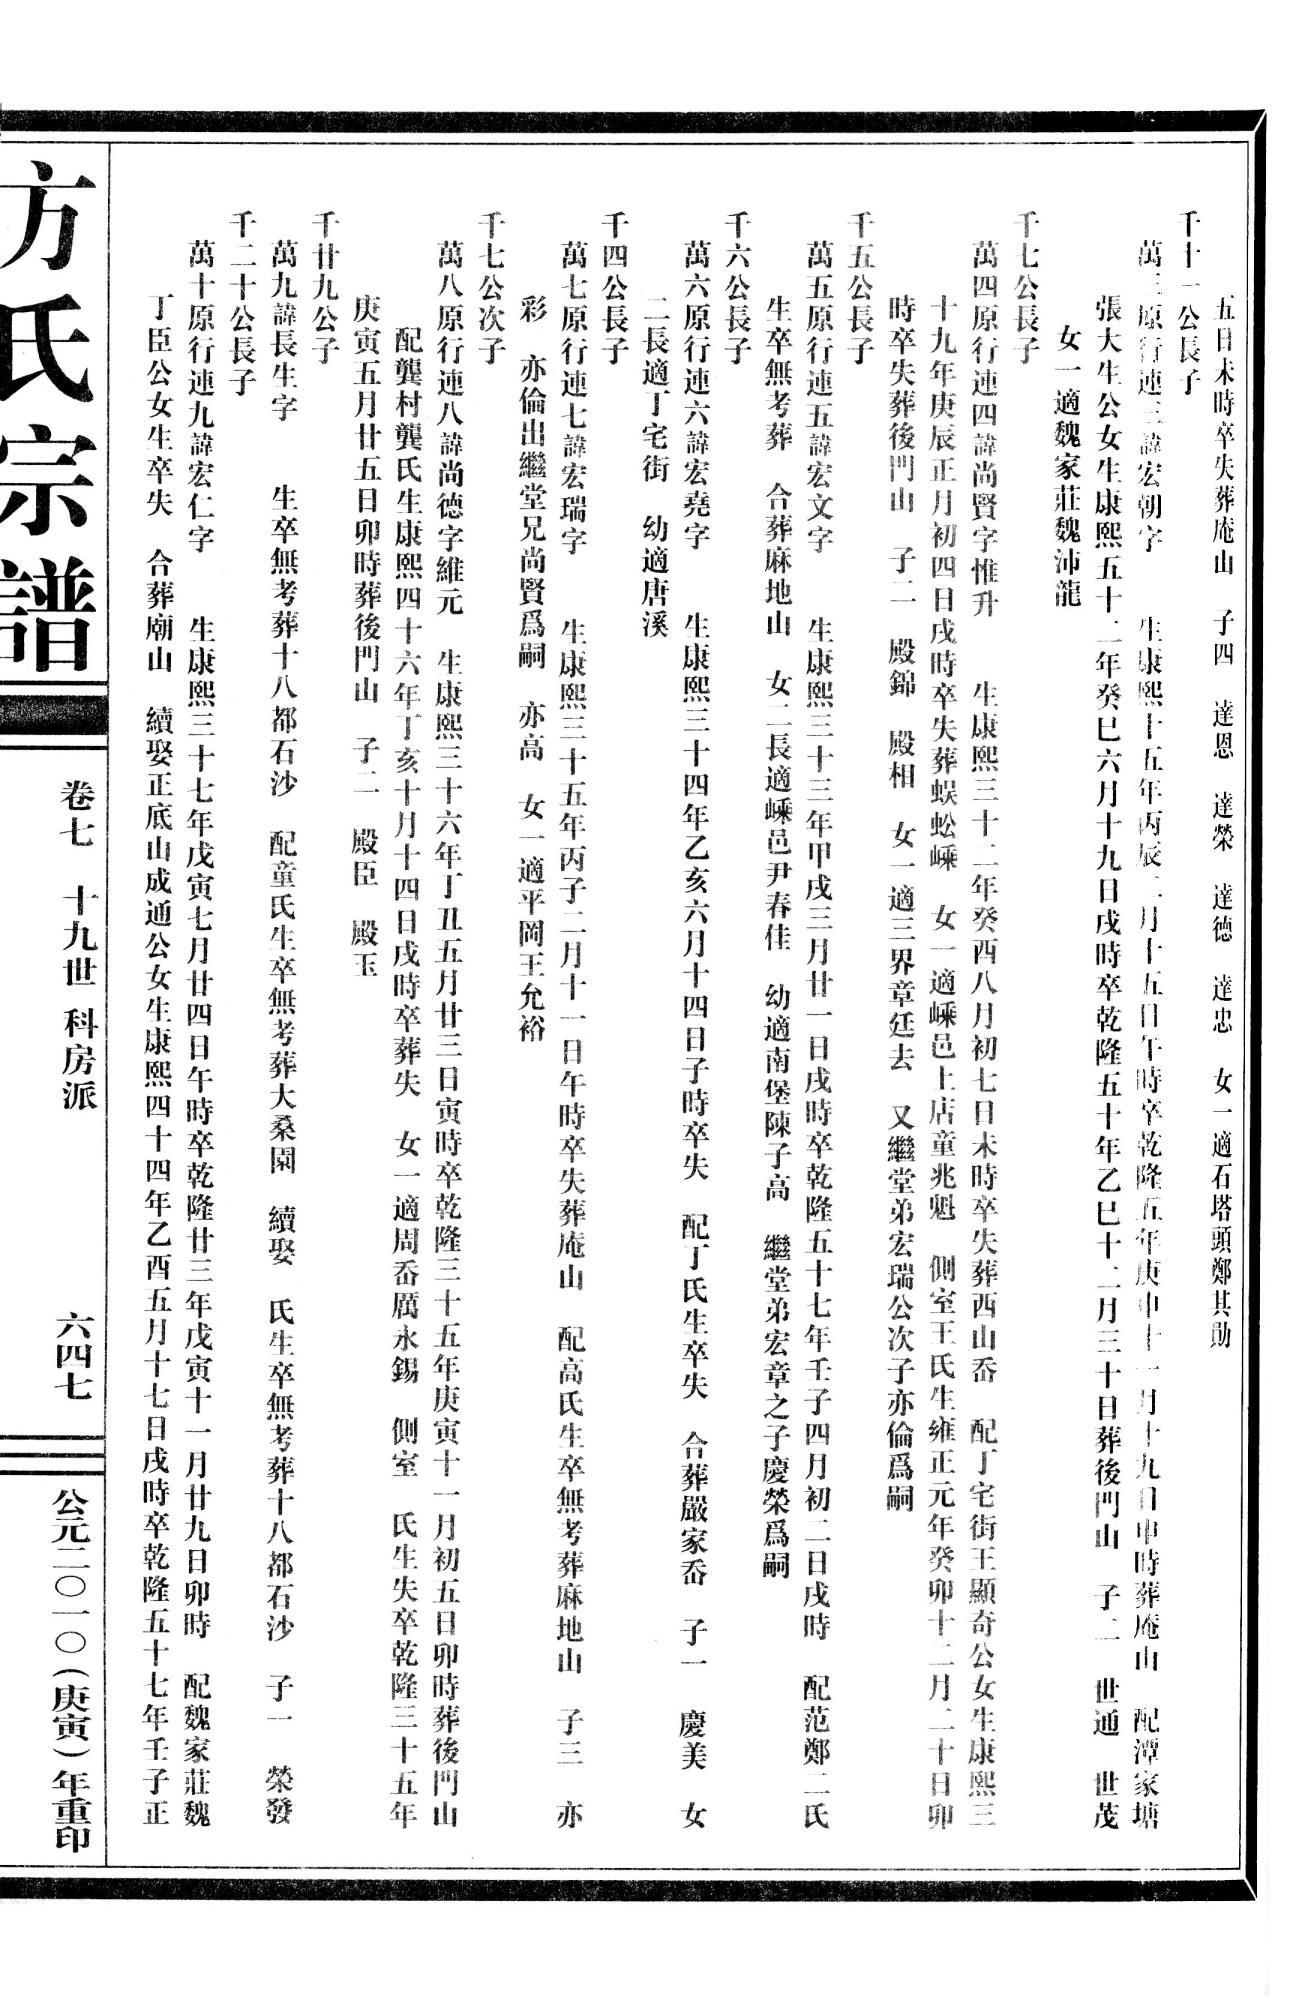 五日未時卒失葬庵山　子四　達恩　達榮　達德　達忠　女一適石塔頭鄭其勛
千十一公長子
萬三原行連三諱宏朝字　　生康熙十五年丙辰二月十五日午時卒乾隆五年庚申十一月十九日申時葬庵山　配潭家塘
張大生公女生康熙五十二年癸巳六月十九日戌時卒乾隆五十年乙巳十二月三十日葬後門山　子二　世通　世茂
女一適魏家莊魏沛龍
千七公長子
萬四原行連四諱尚賢字惟升　　生康熙三十二年癸酉八月初七日未時卒失葬西山岙　配丁宅街王顯奇公女生康熙三
十九年庚辰正月初四日戌時卒失葬蜈蚣嵊　女一適嵊邑上店童兆魁　側室王氏生雍正元年癸卯十二月二十日卯
時卒失葬後門山　子二　殿錦　殿相　女一適三界章廷去　又繼堂弟宏瑞公次子亦倫爲嗣
千五公長子
萬五原行連五諱宏文字　　生康熙三十三年甲戌三月廿一日戌時卒乾隆五十七年壬子四月初二日戌時　配范鄭二氏
生卒無考葬　合葬麻地山　女二長適嵊邑尹春佳　幼適南堡陳子高　繼堂弟宏章之子慶榮爲嗣
千六公長子
萬六原行連六諱宏堯字　　生康熙三十四年乙亥六月十四日子時卒失　配丁氏生卒失　合葬嚴家岙　子一　慶美　女
二長適丁宅街　幼適唐溪
千四公長子
萬七原行連七諱宏瑞字　　生康熙三十五年丙子二月十一日午時卒失葬庵山　配高氏生卒無考葬麻地山　子三　亦
彩　亦倫出繼堂兄尚賢爲嗣　亦高　女一適平岡王允裕
千七公次子
萬八原行連八諱尚德字維元　生康熙三十六年丁丑五月廿三日寅時卒乾隆三十五年庚寅十一月初五日卯時葬後門山
配龔村龔氏生康熙四十六年丁亥十月十四日戌時卒葬失　女一適周岙厲永錫　側室　氏生失卒乾隆三十五年
庚寅五月廿五日卯時葬後門山　子二　殿臣　殿玉
千廿九公子
萬九諱長生字　　生卒無考葬十八都石沙　配童氏生卒無考葬大桑園　續娶　氏生卒無考葬十八都石沙　子一　榮發
千二十公長子
萬十原行連九諱宏仁字　　生康熙三十七年戊寅七月廿四日午時卒乾隆廿三年戊寅十一月廿九日卯時　配魏家莊魏
丁臣公女生卒失　合葬廟山　續娶正底山成通公女生康熙四十四年乙酉五月十七日戌時卒乾隆五十七年壬子正
方氏宗譜
卷七　十九世　科房派
六四七
公元二〇一〇（庚寅）年重印